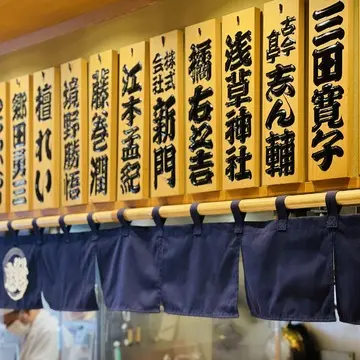 三田寛子
古今亭志ん輔
浅草神社
橘右之吉
株式会社新門
江本孟紀
藤巻潤
境野勝悟
檀れい
郷田勇三